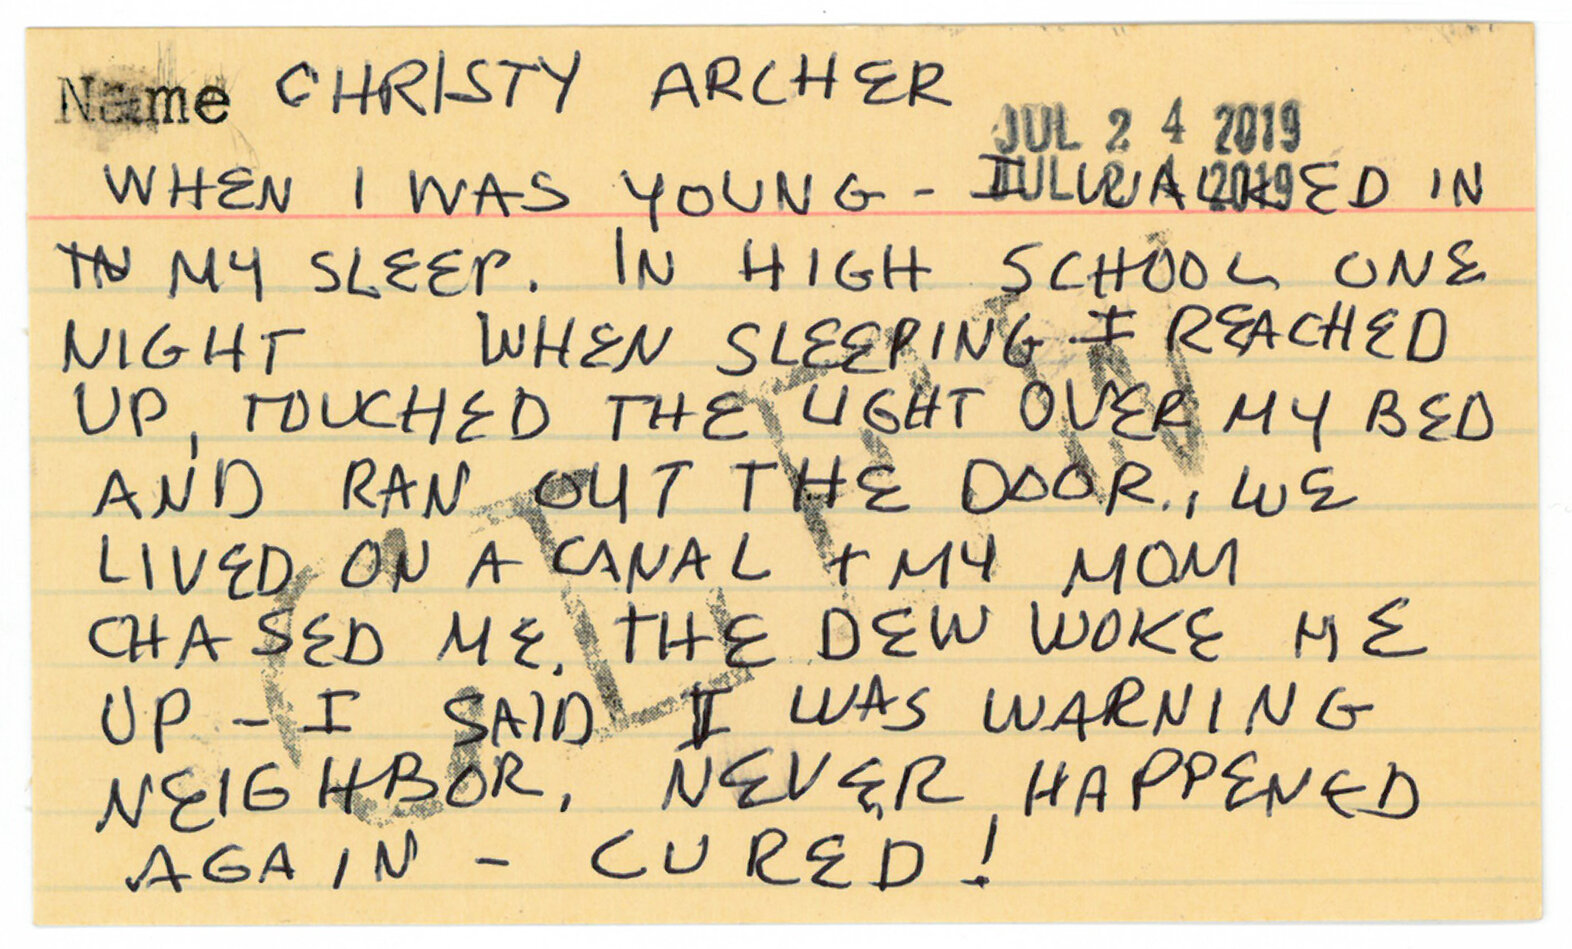 Name CHRISTY ARCHER
JUL 24 2019
JUL 24 2019
WHEN I WAS YOUNG - I WALKED IN
IN MY SLEEP. IN HIGH SCHOOL ONE
NIGHT WHEN SLEEPING I REACHED
UP, TOUCHED THE LIGHT OVER MY BED
AND RAN OUT THE DOOR., WE
LIVED ON A CANAL + MY MOM
CHASED ME. THE DEW WOKE ME
UP - I SAID I WAS WARNING
NEIGHBOR, NEVER HAPPENED
AGAIN - CURED!